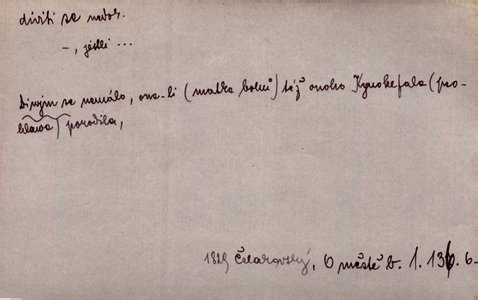 diviti se nad os.
-, jestli ...
Divým se nemálo, ona-li (matka bohů) též onoho Kynokefala (pso-
hlava) porodila,
1829 Čelakovský, O městě B. 1. 136. 6-